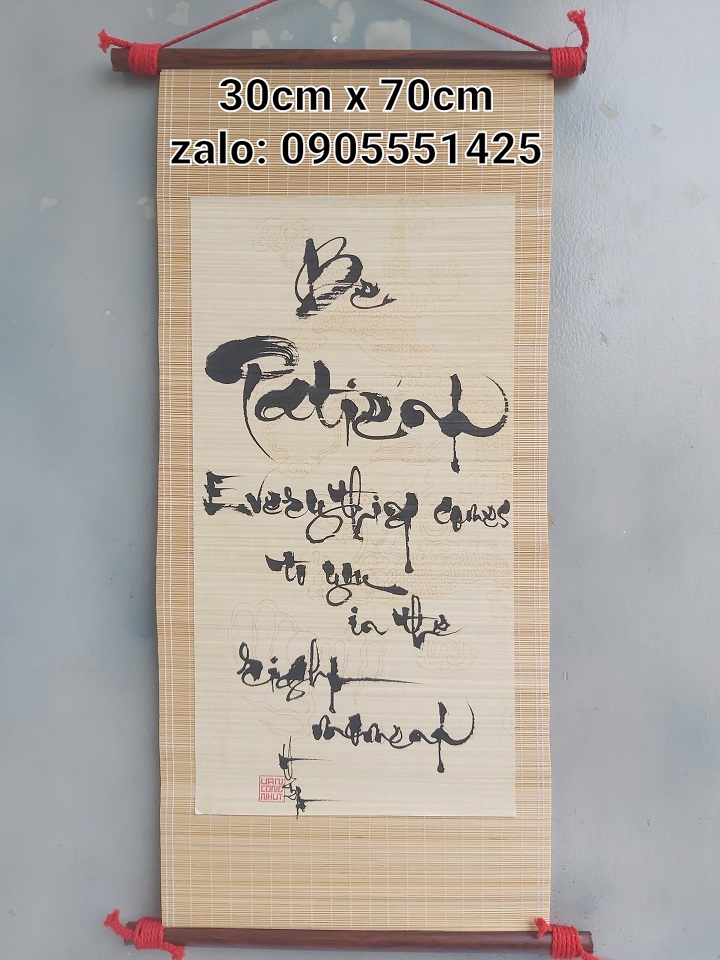 30cm x 70cm
zalo: 0905551425
Be
Patient
Everything comes
to you
in the
right
moment
VAN
CONG
NHUT